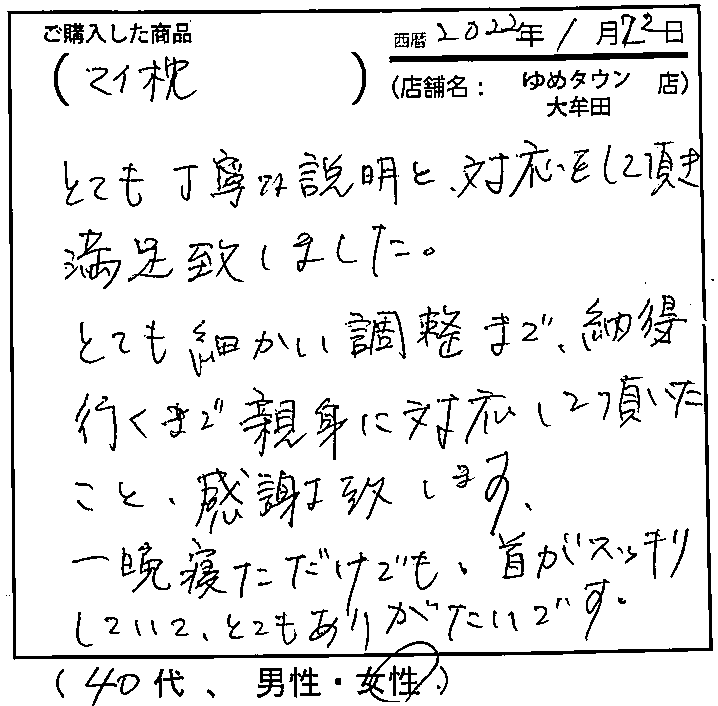 ご購入した商品
西暦 2022年 1月22日
(マイ枕)
(店舗名： ゆめタウン 大牟田 店)
とても丁寧な説明と、対応をして頂き
満足致しました。
とても細かい調整まで、納得
行くまで親身に対応して頂いた
こと、感謝致します、
一晩寝ただけでも、首がスッキリ
していて、とてもありがたいです。
(40代、男性・女性)